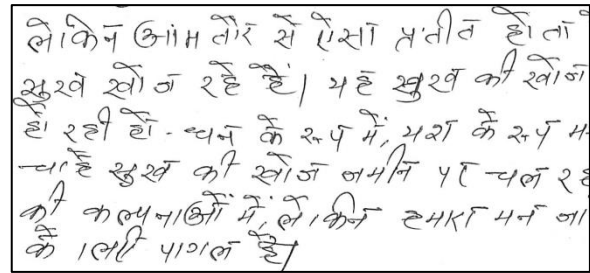 लेकिन आम तौर से ऐसा प्रतीत होता
सुख खोज रहे हैं। यह सुख की खोज
हो रही हो - धन के रूप में, यश के रूप म
चाहे सुख की खोज जमीन पर चल रह
की कल्पनाओं में, लेकिन हमारा मन जा
के लिए पागल है।